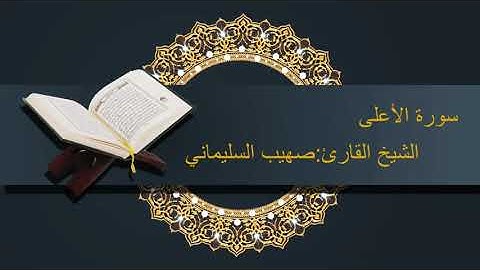 سورة الأعلى
الشيخ القارئ:صهيب السليماني